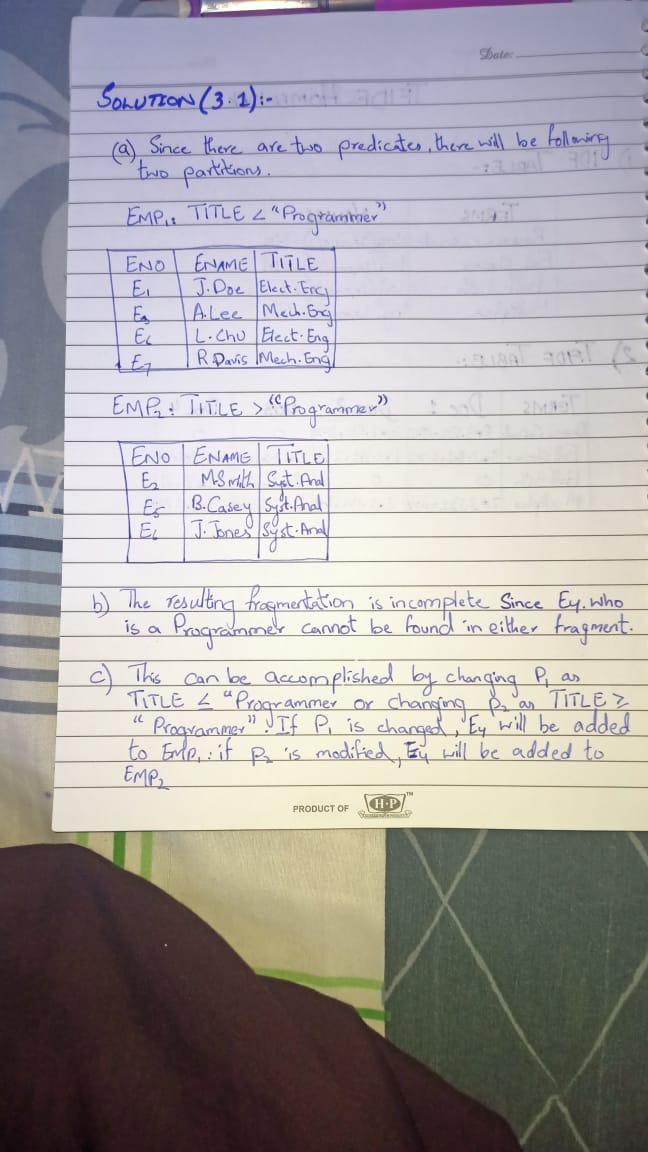 Date:
SOLUTION (3.1):-
(a) Since there are two predicates, there will be following
two partitions.
EMP₁: TITLE < "Programmer"
ENO ENAME TITLE
E₁ J. Doe Elect. Eng
E₃ A. Lee Mech. Eng
E₆ L. Chu Elect. Eng
E₇ R. Davis Mech. Eng
EMP₂: TITLE > "Programmer"
ENO ENAME TITLE
E₂ M.Smith Syst. Anal
E₅ B. Casey Syst. Anal
E₆ J. Jones Syst. Anal
b) The resulting fragmentation is incomplete Since E₄. who
is a Programmer cannot be found in either fragment.
c) This can be accomplished by changing P₁ as
TITLE ≤ "Programmer or changing P₂ as TITLE ≥
"Programmer". If P₁ is changed, E₄ will be added
to EMP₁: if P₂ is modified, E₄ will be added to
EMP₂
PRODUCT OF H·P TM